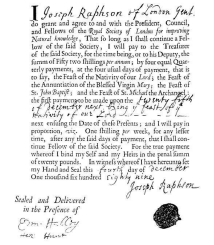 I Joseph Raphson of London Gent.
do grant and agree to and with the President, Council,
and Fellows of the Royal Society of London for improving
Natural knowledge, That so long as I shall continue a Fel-
low of the said Society, I will pay to the Treasurer
of the said Society, for the time being, or to his Deputy, the
summ of Fifty two shillings per annum; by four equal Quar-
terly payments, at the four usual days of payment, that is
to say, the Feast of the Nativity of our Lord; the Feast of
the Annunciation of the Blessed Virgin Mary; the Feast of
St. John Baptist; and the Feast of St. Michael the Archangel:
the first payment to be made upon the Twenty fifth
of december next Being ye feast of ye
Nativity of our Lord
next ensuing the Date of these Presents; and I will pay in
proportion, viz. One shilling per week, for any lesser
time, after any the said days of payment, that I shall con-
tinue Fellow of the said Society. For the true payment
whereof I bind my Self and my Heirs in the penal summ
of twenty pounds. In witness whereof I have hereunto set
my Hand and Seal this fourth day of december
One thousand six hundred eighty nine
Joseph Raphson
Sealed and Delivered
in the Presence of
Edm. Halley